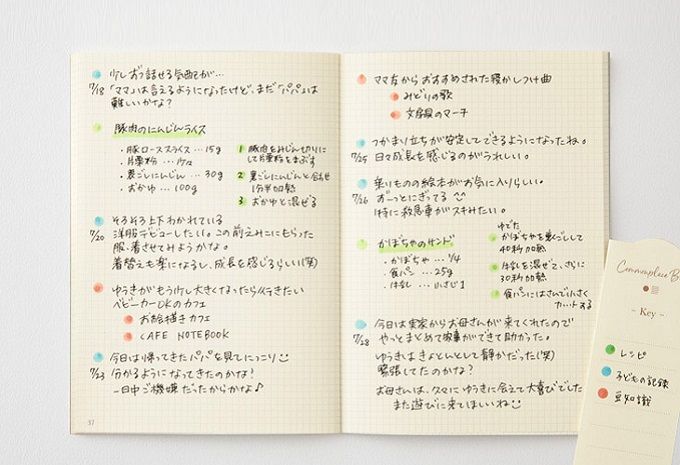 少しずつ話せる気配が…
7/18 「ママ」は言えるようになったけど、まだ「パパ」は
難しいかな?
豚肉のにんじんライス
・豚ロースライス…15g
・片栗粉…少々
・裏ごしにんじん…30g
・おかゆ…100g
1 豚肉をみじん切りに
して片栗粉をまぶす
2 裏ごしにんじんと合せ
1分半加熱
3 おかゆと混ぜる
そろそろ上下わかれている
7/20 洋服デビューしたい。この前えみこにもらった
服、着させてみようかな。
着替えも楽になるし、成長を感じるらしい(笑)
ゆうきがもう少し大きくなったら行きたい
ベビーカーOKのカフェ
お絵描きカフェ
CAFE NOTEBOOK
今日は帰ってきたパパを見てにっこり
7/23 分かるようになってきたのかな!
一日中ご機嫌だったからかな♪
37
ママ友からおすすめされた寝かしつけ曲
みどりの歌
文房具のマーチ
つかまり立ちが安定してできるようになったね。
7/25 日々成長を感じるのがうれしい。
乗りものの絵本がお気に入りらしい。
7/26 ずーっとにぎってる
特に救急車がスキみたい。
かぼちゃのサンド
・かぼちゃ…1/4
・食パン…25g
・牛乳…小さじ1
ゆでた
かぼちゃを裏ごしして
40秒加熱
牛乳を混ぜて、さらに
30秒加熱
食パンにはさんで小さく
カットする
今日は実家からお母さんが来てくれたので
7/28 やっとまとめて家事ができて助かった。
ゆうきはきょとんとして静かだった(笑)
緊張してたのかな?
お母さんは、久々にゆうきに会えて大喜びでした
また遊びに来てほしいね
Commonplace B
- Key -
レシピ
子どもの記録
豆知識